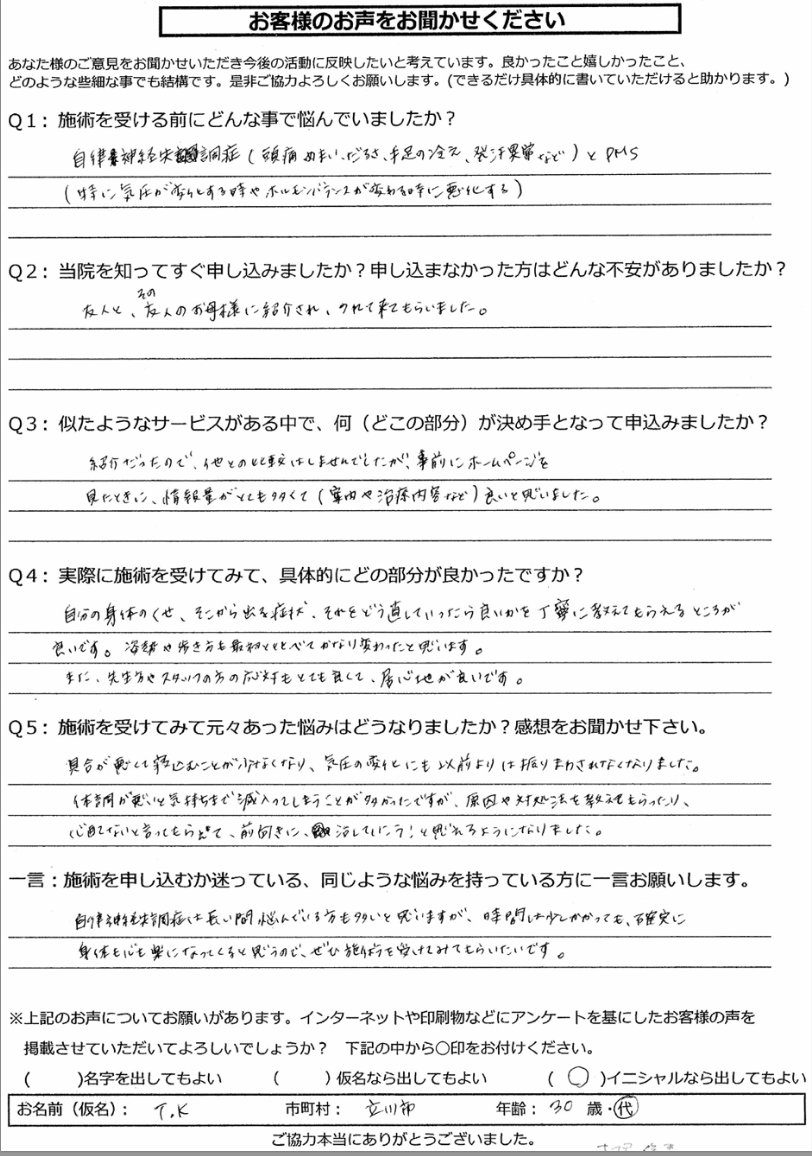 お客様のお声をお聞かせください
あなた様のご意見をお聞かせいただき今後の活動に反映したいと考えています。良かったこと嬉しかったこと、
どのような些細な事でも結構です。是非ご協力よろしくお願いします。(できるだけ具体的に書いていただけると助かります。)
Q1：施術を受ける前にどんな事で悩んでいましたか？
自律神経失調症（頭痛、めまい、だるさ、手足の冷え、発汗異常など）とPMS
（特に気圧が変化する時やホルモンバランスが変わる時に悪化する）
Q2：当院を知ってすぐ申し込みましたか？申し込まなかった方はどんな不安がありましたか？
友人と、その友人のお母様に紹介され、つれて来てもらいました。
Q3：似たようなサービスがある中で、何（どこの部分）が決め手となって申込みましたか？
紹介だったので、他との比較はしませんでしたが、事前にホームページを
見たときに、情報量がとても多くて（案内や治療内容など）良いと思いました。
Q4：実際に施術を受けてみて、具体的にどの部分が良かったですか？
自分の身体のくせ、そこから出る症状、それをどう直していったら良いかを丁寧に教えてもらえるところが
良いです。姿勢や歩き方も最初とくらべてかなり変わったと思います。
また、先生方やスタッフの方の応対もとても良くて、居心地が良いです。
Q5：施術を受けてみて元々あった悩みはどうなりましたか？感想をお聞かせ下さい。
具合が悪くて寝込むことが少なくなり、気圧の変化にも以前よりは振りまわされなくなりました。
体調が悪いと気持ちまで滅入ってしまうことが多かったですが、原因や対処法を教えてもらったり、
心配ないと言ってもらえて、前向きに、治していこう！と思えるようになりました。
一言：施術を申し込むか迷っている、同じような悩みを持っている方に一言お願いします。
自律神経失調症は長い間悩んでいる方も多いと思いますが、時間は少しかかっても、確実に
身体も心も楽になってくると思うので、ぜひ施術を受けてみてもらいたいです。
※上記のお声についてお願いがあります。インターネットや印刷物などにアンケートを基にしたお客様の声を
掲載させていただいてよろしいでしょうか？ 下記の中から〇印をお付けください。
(　　)名字を出してもよい　(　　)仮名なら出してもよい　(〇)イニシャルなら出してもよい
お名前（仮名）： T.K　市町村： 立川市　年齢： 30 歳・代
ご協力本当にありがとうございました。